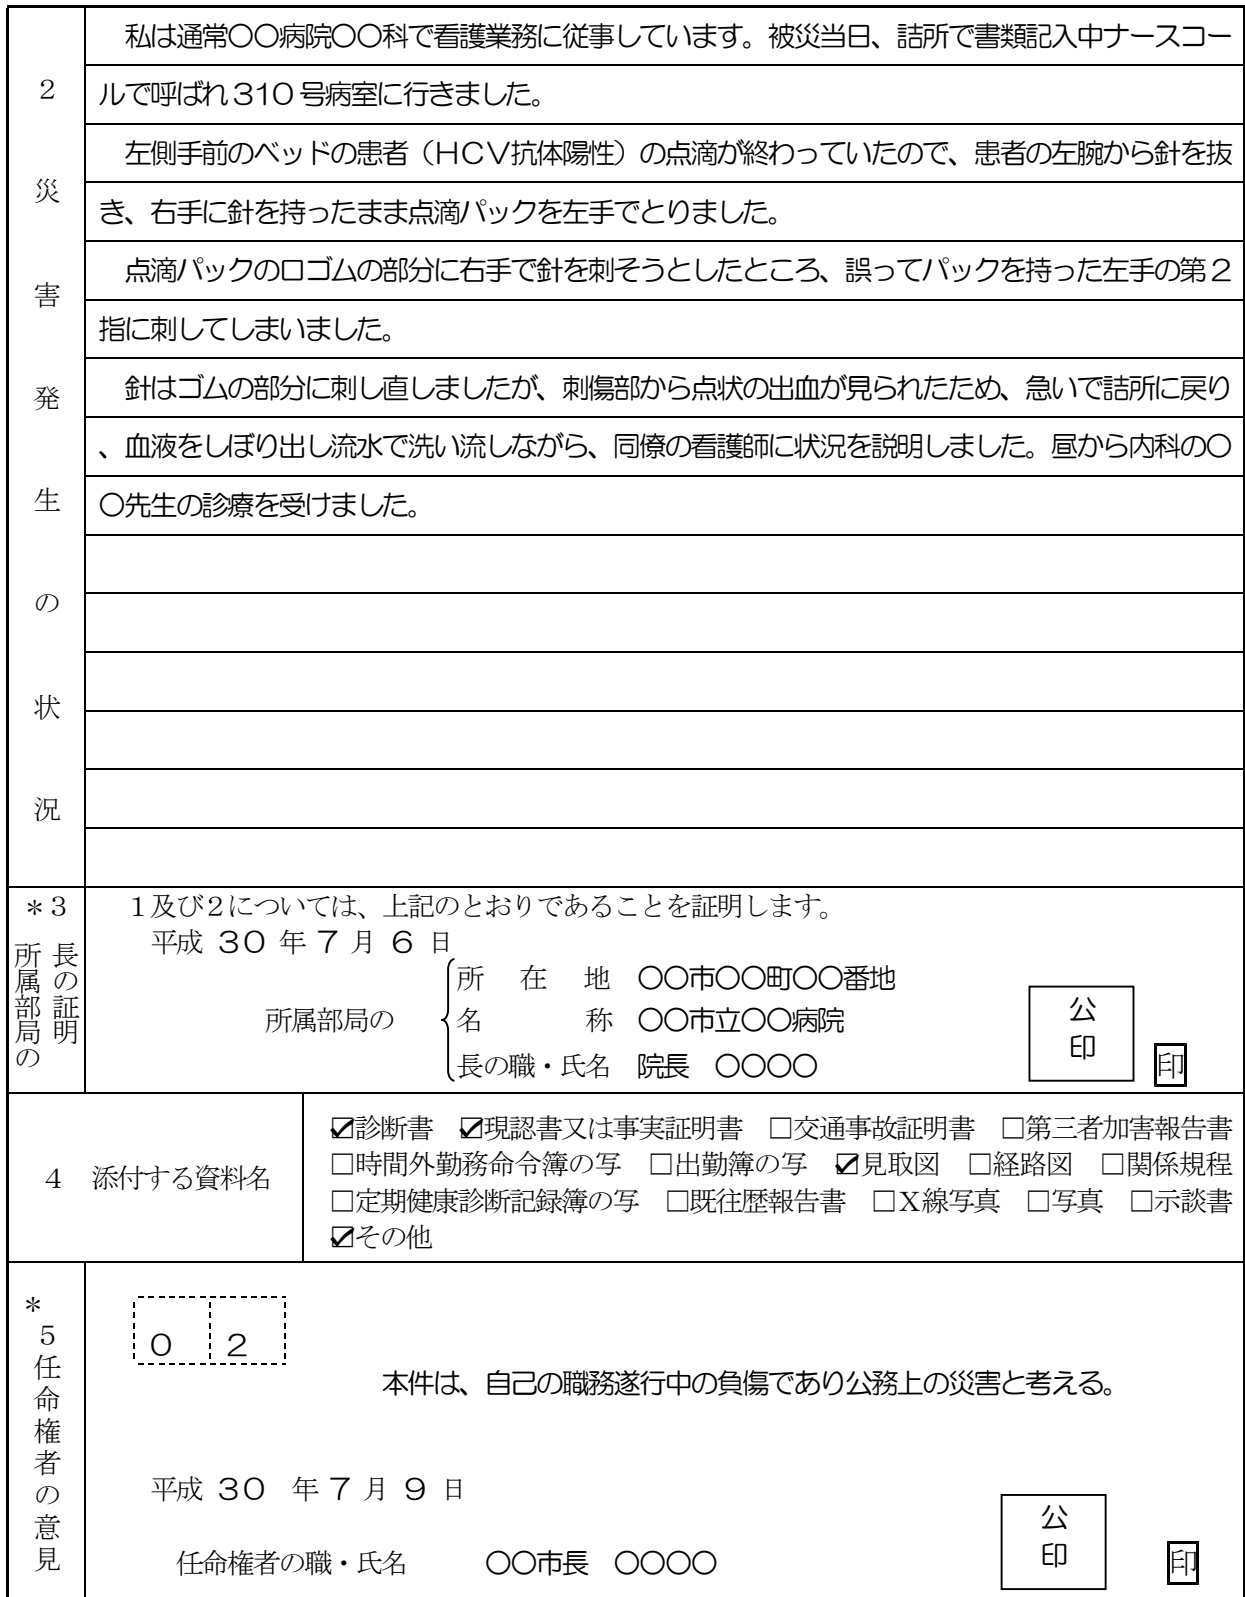 2 災害発生の状況
私は通常〇〇病院〇〇科で看護業務に従事しています。被災当日、詰所で書類記入中ナースコー
ルで呼ばれ310号病室に行きました。
左側手前のベッドの患者（HCV抗体陽性）の点滴が終わっていたので、患者の左腕から針を抜
き、右手に針を持ったまま点滴パックを左手でとりました。
点滴パックの口ゴムの部分に右手で針を刺そうとしたところ、誤ってパックを持った左手の第2
指に刺してしまいました。
針はゴムの部分に刺し直しましたが、刺傷部から点状の出血が見られたため、急いで詰所に戻り
、血液をしぼり出し流水で洗い流しながら、同僚の看護師に状況を説明しました。昼から内科の〇
〇先生の診療を受けました。
＊3 所属部局の長の証明
1及び2については、上記のとおりであることを証明します。
平成 30 年 7 月 6 日
所属部局の
所在地 〇〇市〇〇町〇〇番地
名称 〇〇市立〇〇病院
長の職・氏名 院長 〇〇〇〇
公印
印
4 添付する資料名
☑診断書 ☑現認書又は事実証明書 □交通事故証明書 □第三者加害報告書
□時間外勤務命令簿の写 □出勤簿の写 ☑見取図 □経路図 □関係規程
□定期健康診断記録簿の写 □既往歴報告書 □X線写真 □写真 □示談書
☑その他
＊5 任命権者の意見
0 2
本件は、自己の職務遂行中の負傷であり公務上の災害と考える。
平成 30 年 7 月 9 日
任命権者の職・氏名 〇〇市長 〇〇〇〇
公印
印